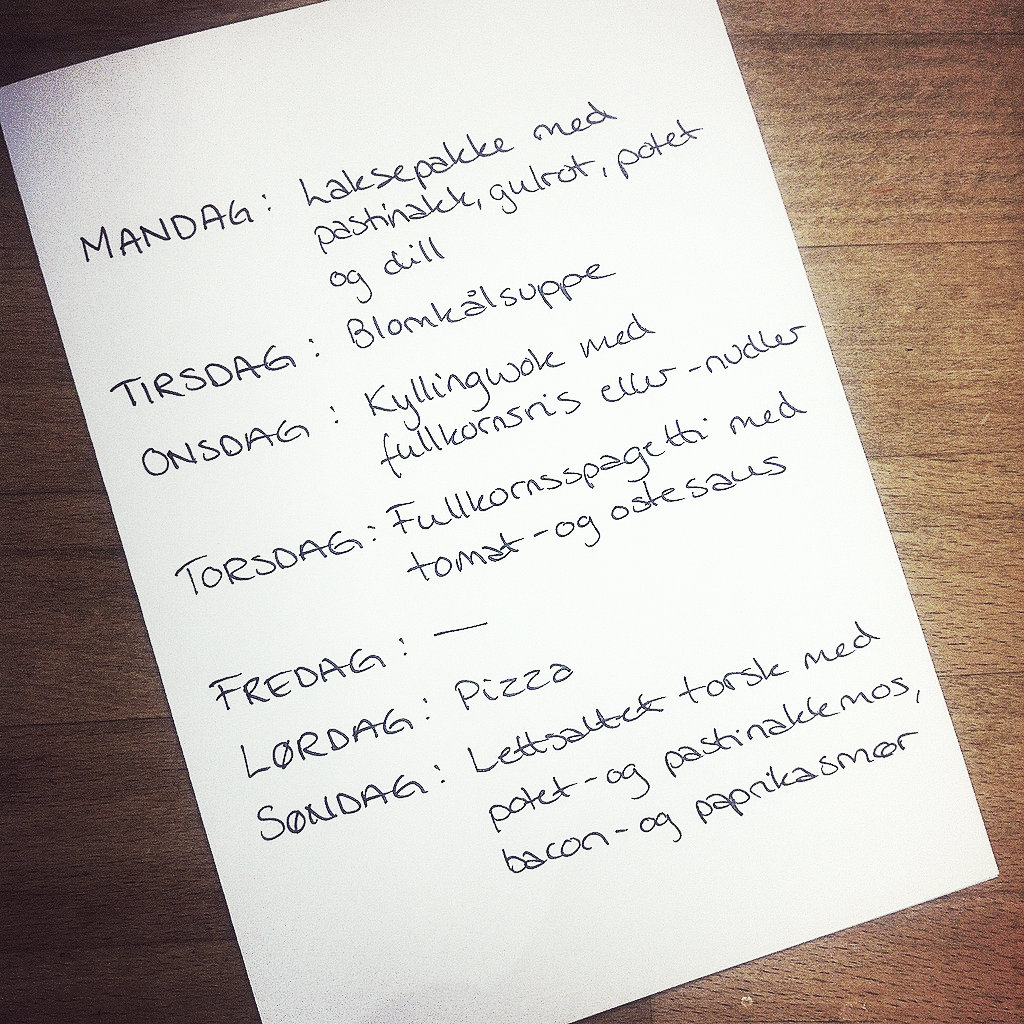 MANDAG: Laksepakke med
pastinakk, gulrot, potet
og dill
TIRSDAG: Blomkålsuppe
ONSDAG: Kyllingwok med
fullkornsris eller -nudler
TORSDAG: Fullkornsspagetti med
tomat-og ostesaus
FREDAG: —
LØRDAG: Pizza
SØNDAG: Lettsaltet torsk med
potet-og pastinakkmos,
bacon-og paprikasmør